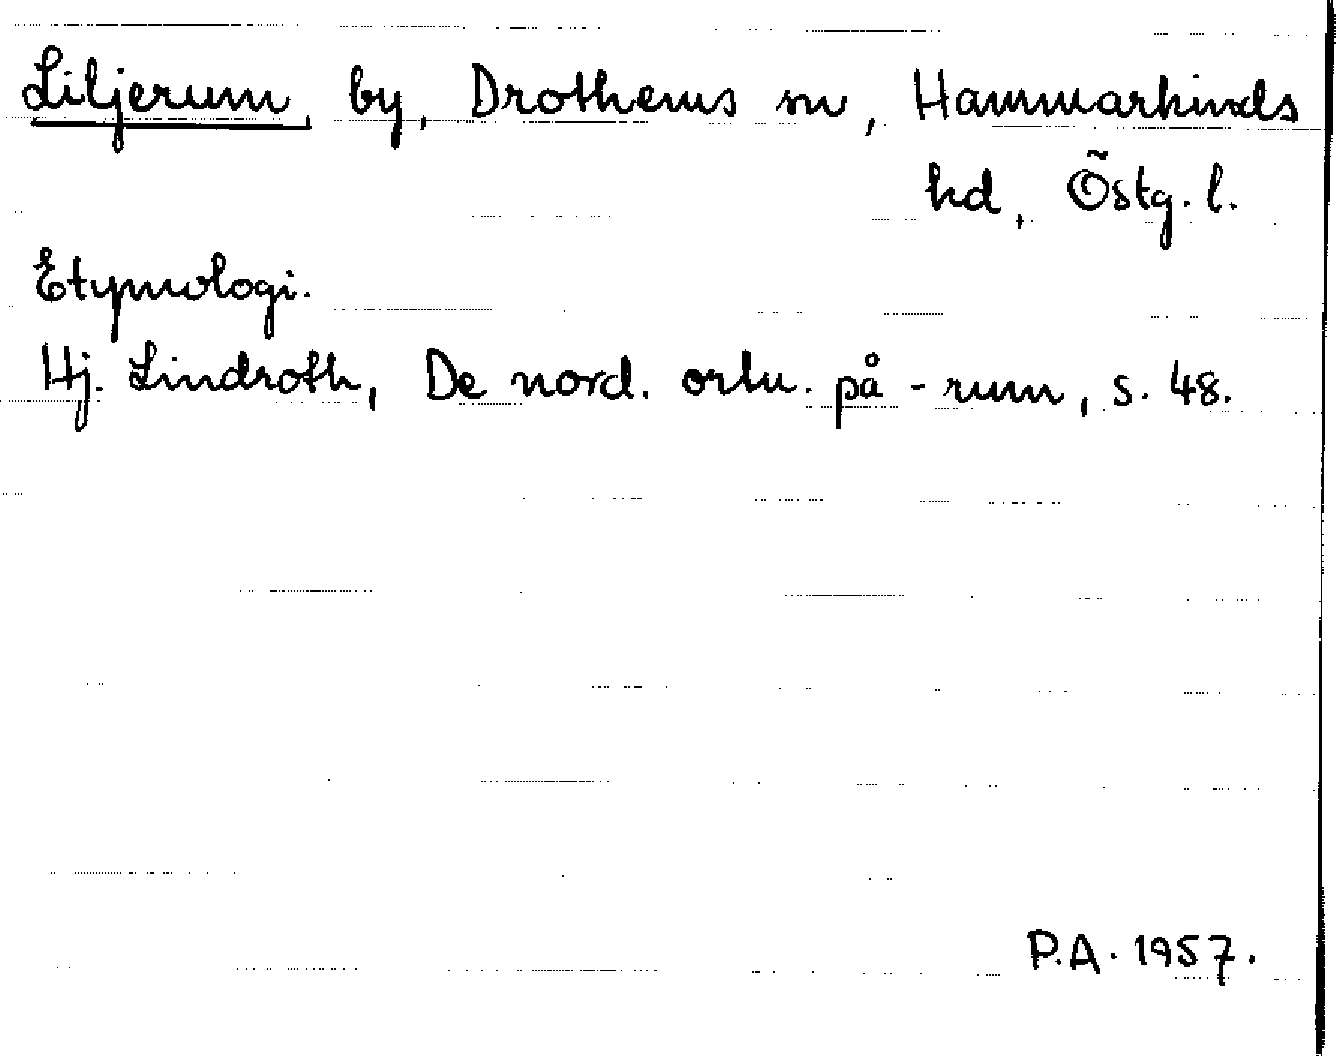 Liljerum, by, Drothems sn, Hammarkinds
hd, Östg. l.
Etymologi.
Hj. Lindroth, De nord. ortn. på -rum, s. 48.
P.A. 1957.